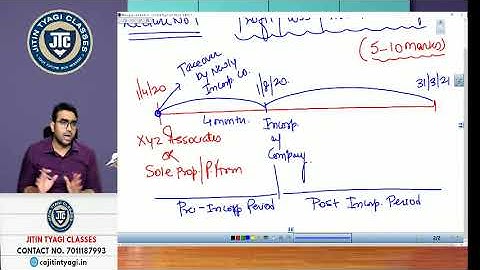 JITIN TYAGI CLASSES
JTC
Lecture No 1
Profit
Loss
(5-10 marks)
Takeover
by Newly
Incorp Co.
1/4/20
1/8/20.
31/3/21
4 month
XYZ Associates
or
Sole Prop/P.firm
Incorp.
of
Company.
Pre-Incorp Period
Post Incorp. Period
JITIN TYAGI CLASSES
CONTACT NO. 7011187993
cajitintyagi.in
2/2